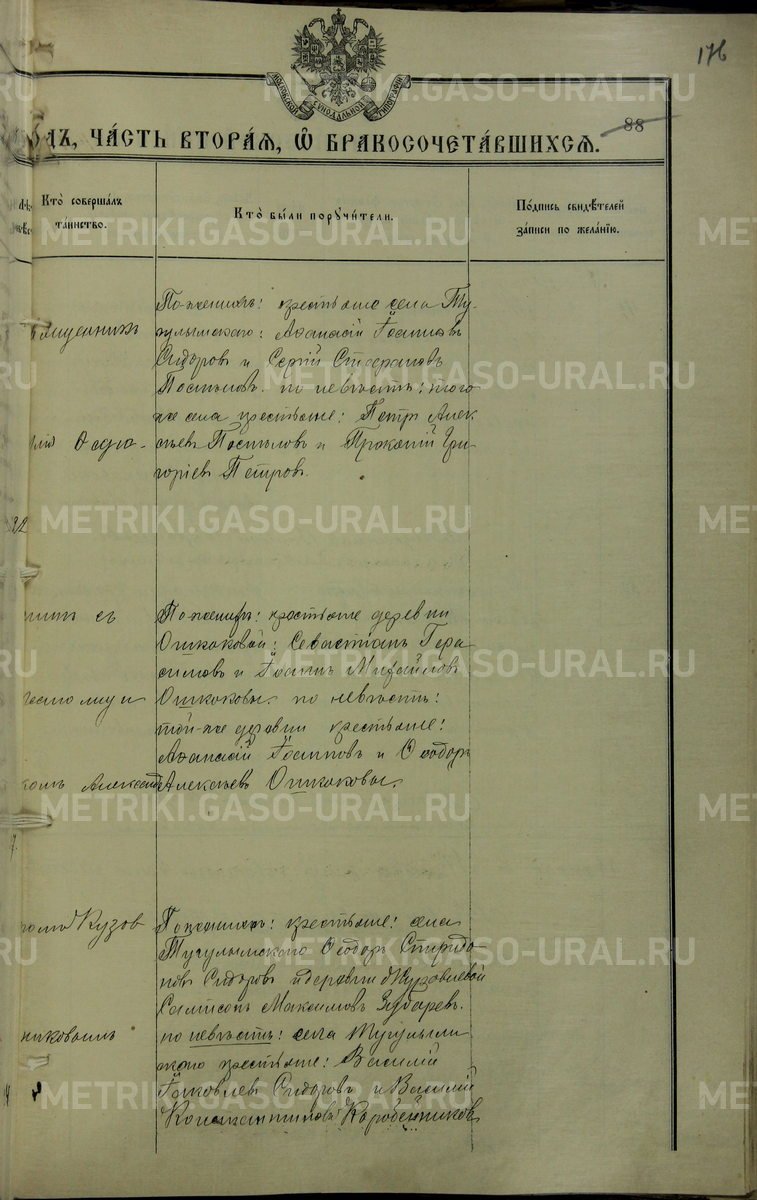 176
МОСКОВСКОЙ СѴНОДАЛЬНОЙ ТИПОГРАФІИ
88
ОДЪ, ЧА́СТЬ ВТОРА́Я, Ѡ БРАКОСОЧЕТА́ВШИХСЯ.
Кто̀ совершáлъ
тáинство.
Кто̀ бы́ли поручи́тели.
По́дпись свидѣ́телей
зáписи по желáнїю.
По женихѣ: крестьяне села Ту-
гулымскаго: Аѳанасій Іоанновъ
Сидоровъ и Сергій Стефановъ
Поспѣловъ. по невѣстѣ: того-
же села крестьяне: Петръ Алек-
сѣевъ Поспѣловъ и Прокопій Гри-
горіевъ Петровъ.
По женихѣ: крестьяне деревни
Ошкуковой: Севастіанъ Гера
симовъ и Іоаннъ Михайловъ
Ошкуковы. по невѣстѣ:
той-же деревни крестьяне:
Аѳанасій Іоанновъ и Ѳеодоръ
Алексѣевъ Ошкуковы.
Кузов
По женихѣ: крестьяне: села
Тугулымскаго Ѳеодоръ Спиридо
новъ Сидоровъ и деревни Журавлевой
Сампсонъ Максимовъ Зубаревъ.
по невѣстѣ: села Тугулым
скаго крестьяне: Василій
Іаковлевъ Сидоровъ и Василій
Константиновъ Коробейниковъ
METRIKI.GASO-URAL.RU